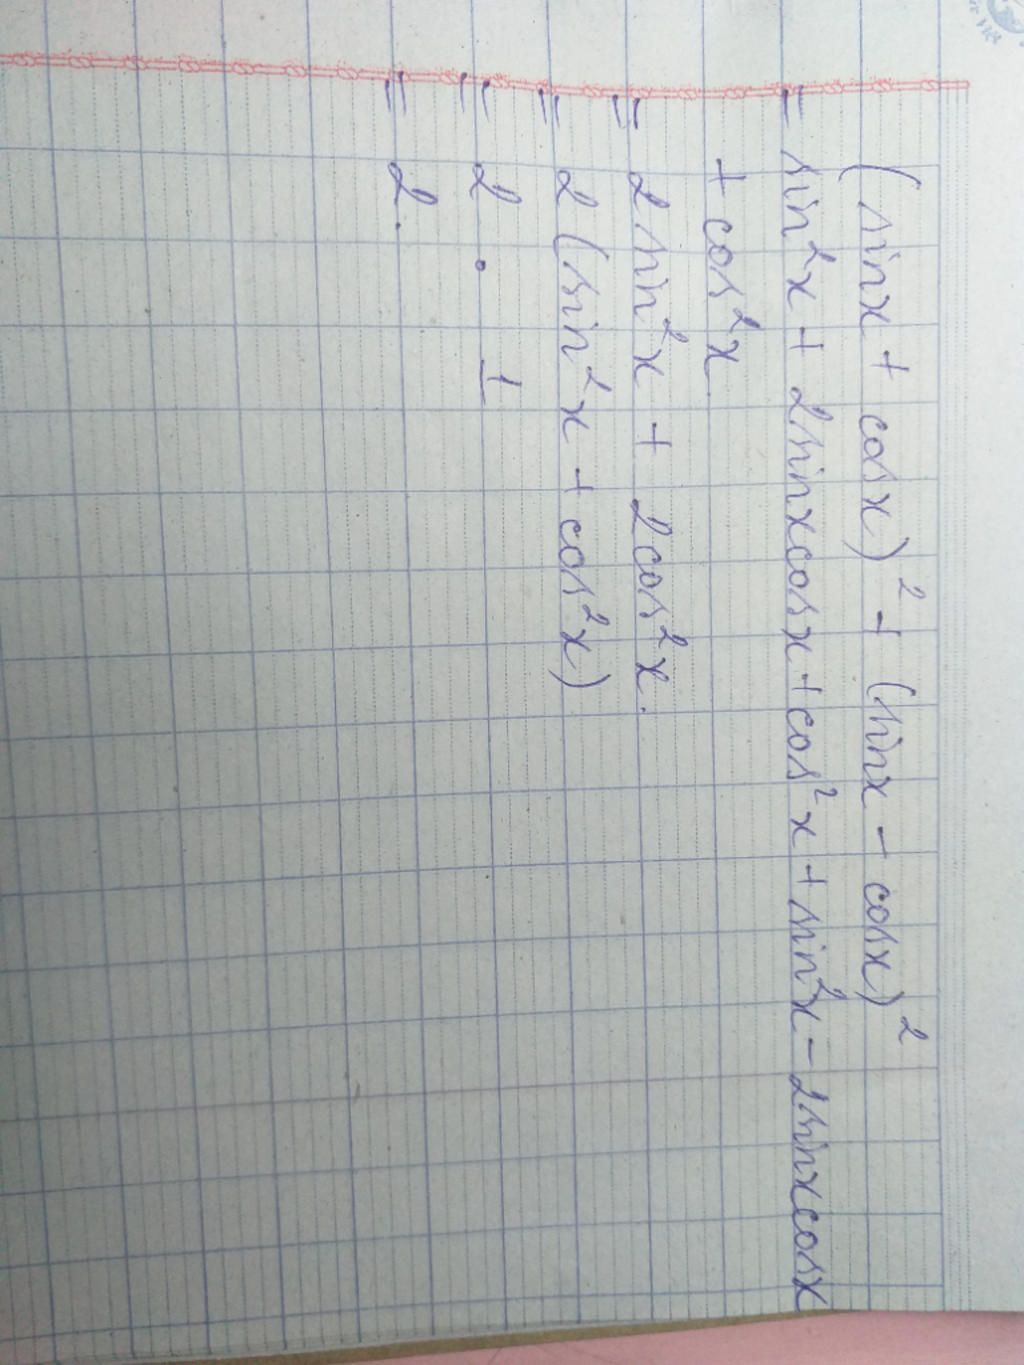 (sinx + cosx)² + (sinx - cosx)²
= sin²x + 2sinxcosx + cos²x + sin²x - 2sinxcosx
+ cos²x
= 2sin²x + 2cos²x.
= 2(sin²x + cos²x)
= 2 . 1
= 2.